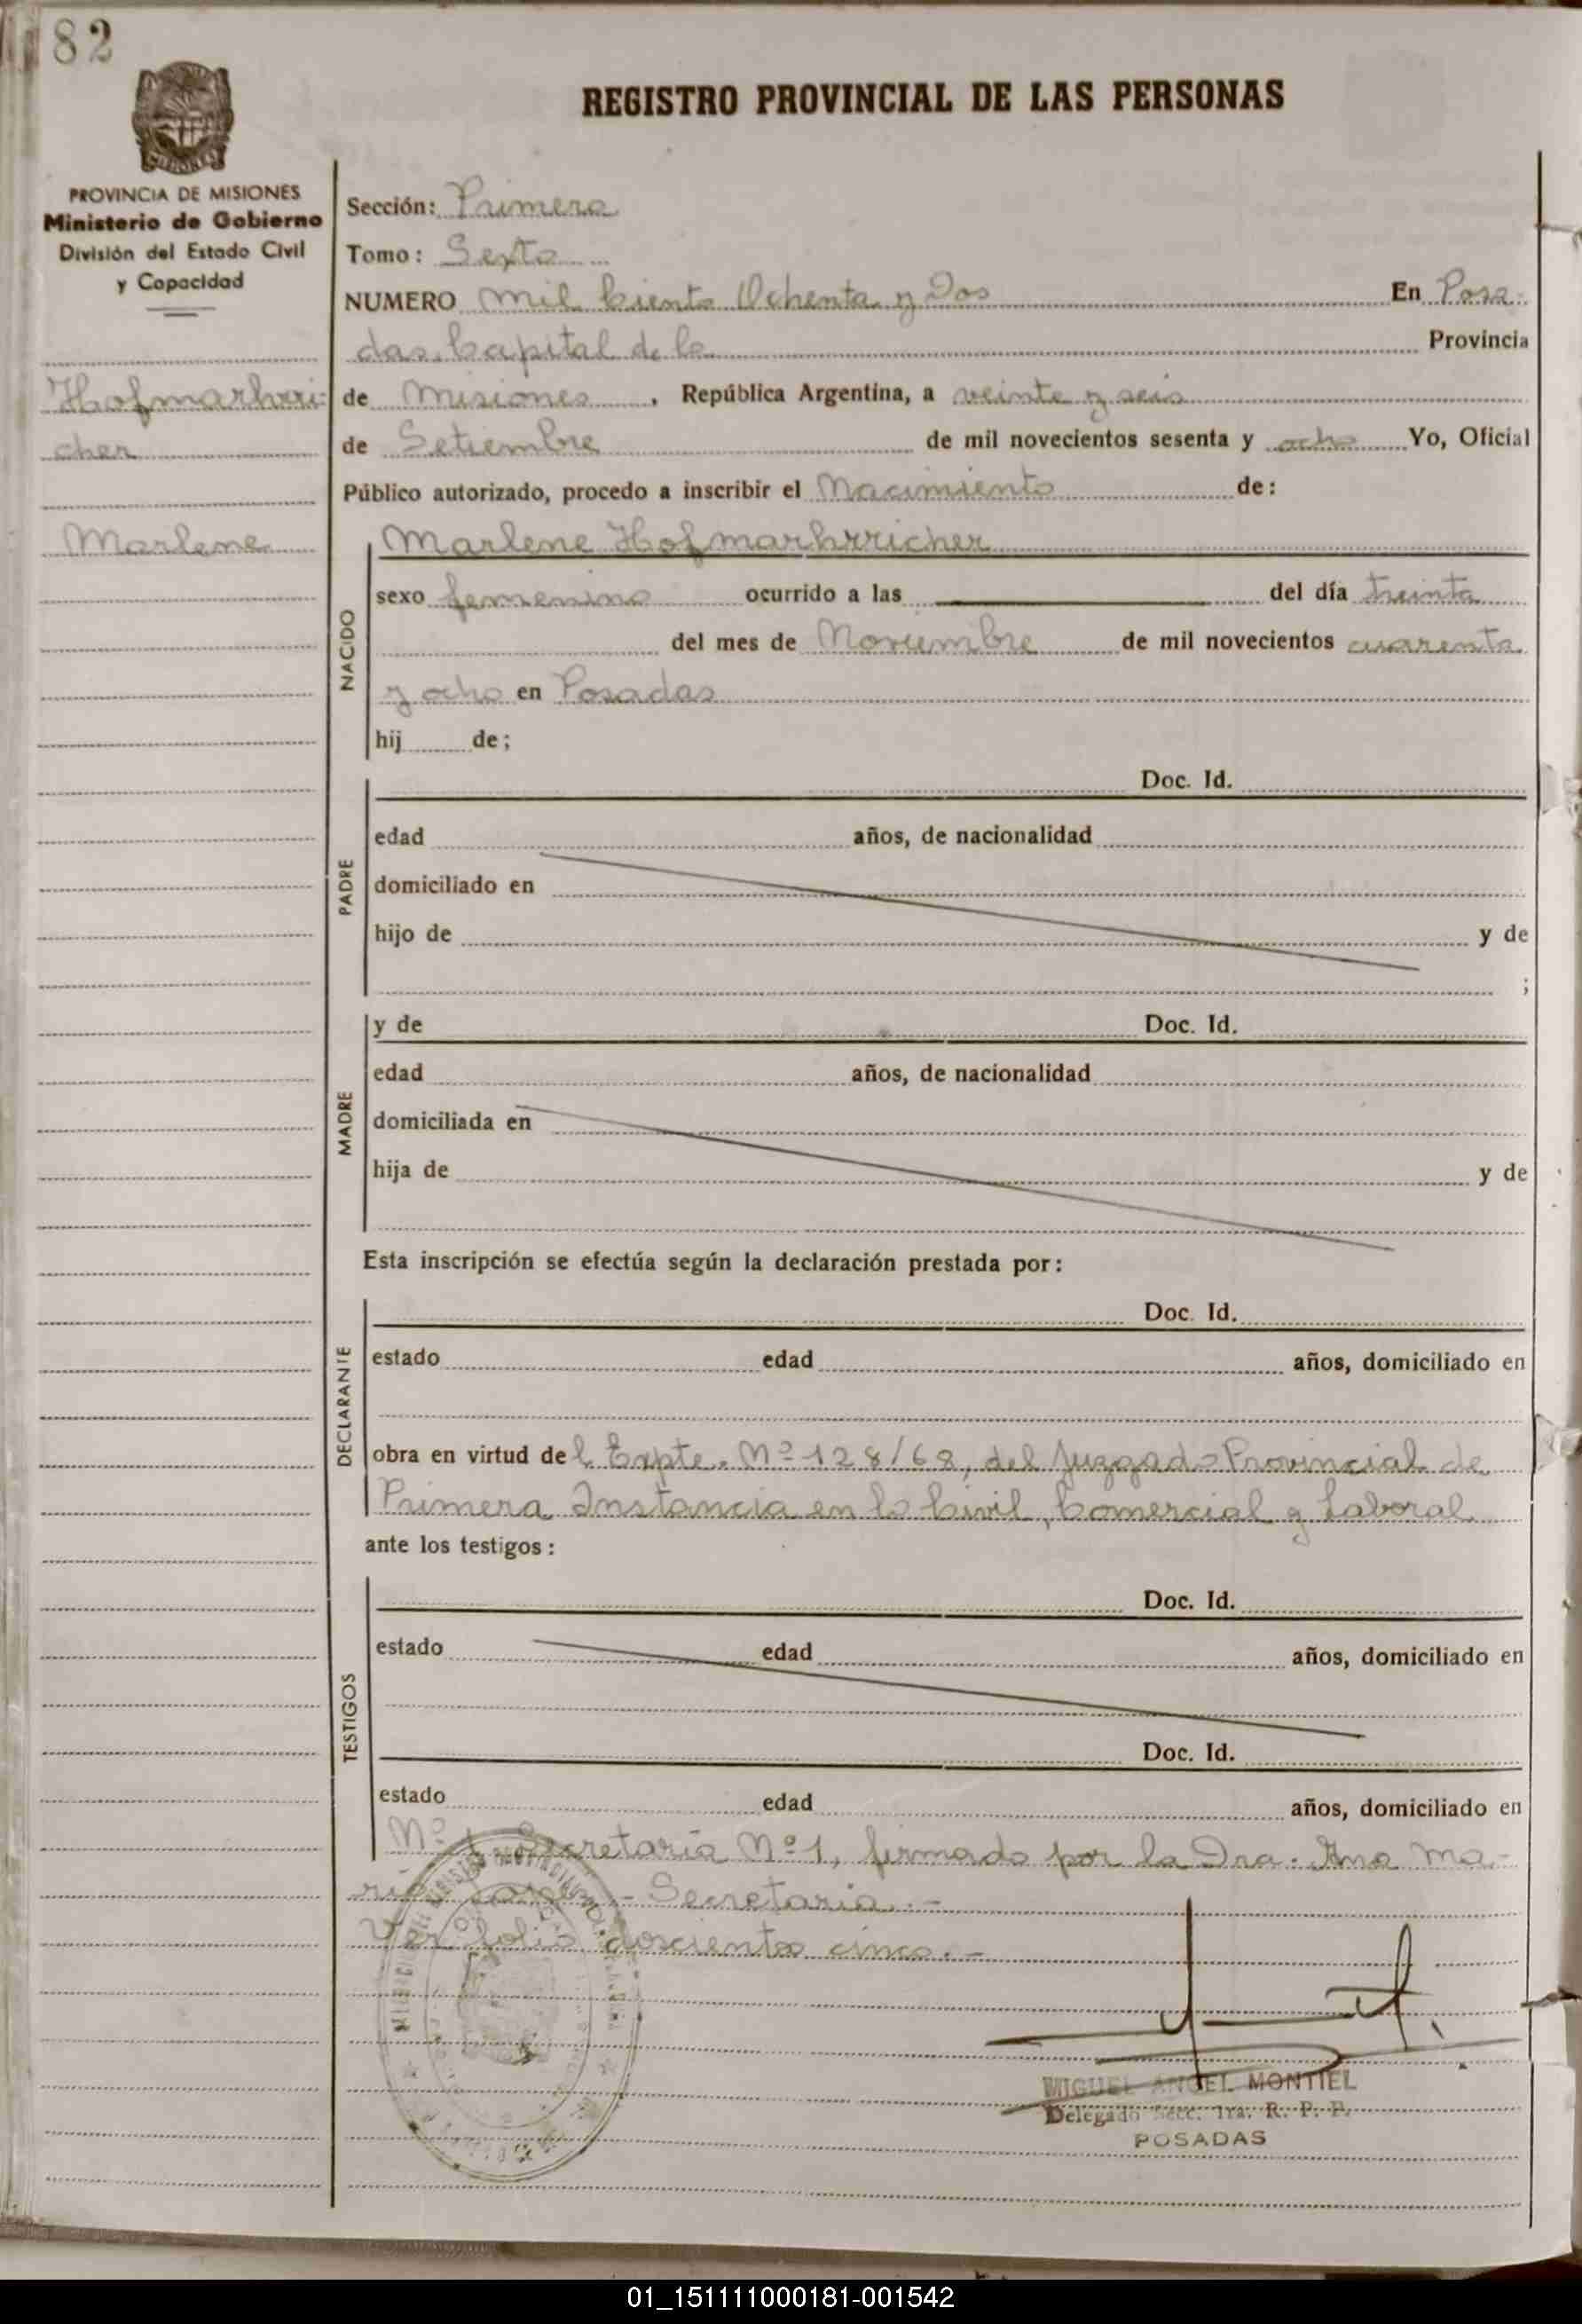 82
REGISTRO PROVINCIAL DE LAS PERSONAS
PROVINCIA DE MISIONES
Ministerio de Gobierno
División del Estado Civil
y Capacidad
Hofmarhrri-
cher
Marlene
Sección: Primera
Tomo: Sexto
NUMERO Mil Ciento Ochenta y Dos En Posa-
das, Capital de la Provincia
de Misiones, República Argentina, a veinte y seis
de Setiembre de mil novecientos sesenta y ocho Yo, Oficial
Público autorizado, procedo a inscribir el Nacimiento de:
NACIDO
Marlene Hofmarhrricher
sexo femenino ocurrido a las del día treinta
del mes de Noviembre de mil novecientos cuarenta
y ocho en Posadas
hij de;
PADRE
Doc. Id.
edad años, de nacionalidad
domiciliado en
hijo de y de
;
MADRE
y de Doc. Id.
edad años, de nacionalidad
domiciliada en
hija de y de
Esta inscripción se efectúa según la declaración prestada por:
DECLARANTE
Doc. Id.
estado edad años, domiciliado en
obra en virtud del Expte. Nº 128/68, del Juzgado Provincial de
Primera Instancia en lo Civil, Comercial y Laboral
ante los testigos:
TESTIGOS
Doc. Id.
estado edad años, domiciliado en
Doc. Id.
estado edad años, domiciliado en
Nº 1, Secretaría Nº 1, firmado por la Dra. Ana Ma-
ría - Secretaria.-
Ver folio doscientos cinco.-
MIGUEL ANGEL MONTIEL
Delegado Secc. 1ra. R. P. P.
POSADAS
01_151111000181-001542